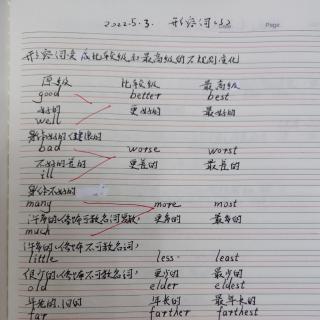 2022.5.3. 形容词
Page
形容词变成比较级和最高级的不规则变化
原级 比较级 最高级
good better best
好的 更好的 最好的
well
身体好的(健康的)
bad worse worst
不好的差的 更差的 最差的
ill
身体不好的
many more most
许多的(修饰可数名词复数) 更多的 最多的
much
许多的(修饰不可数名词)
little less least
很少的(修饰不可数名词) 更少的 最少的
old elder eldest
年老的,旧的 年长的 最年长的
far farther farthest